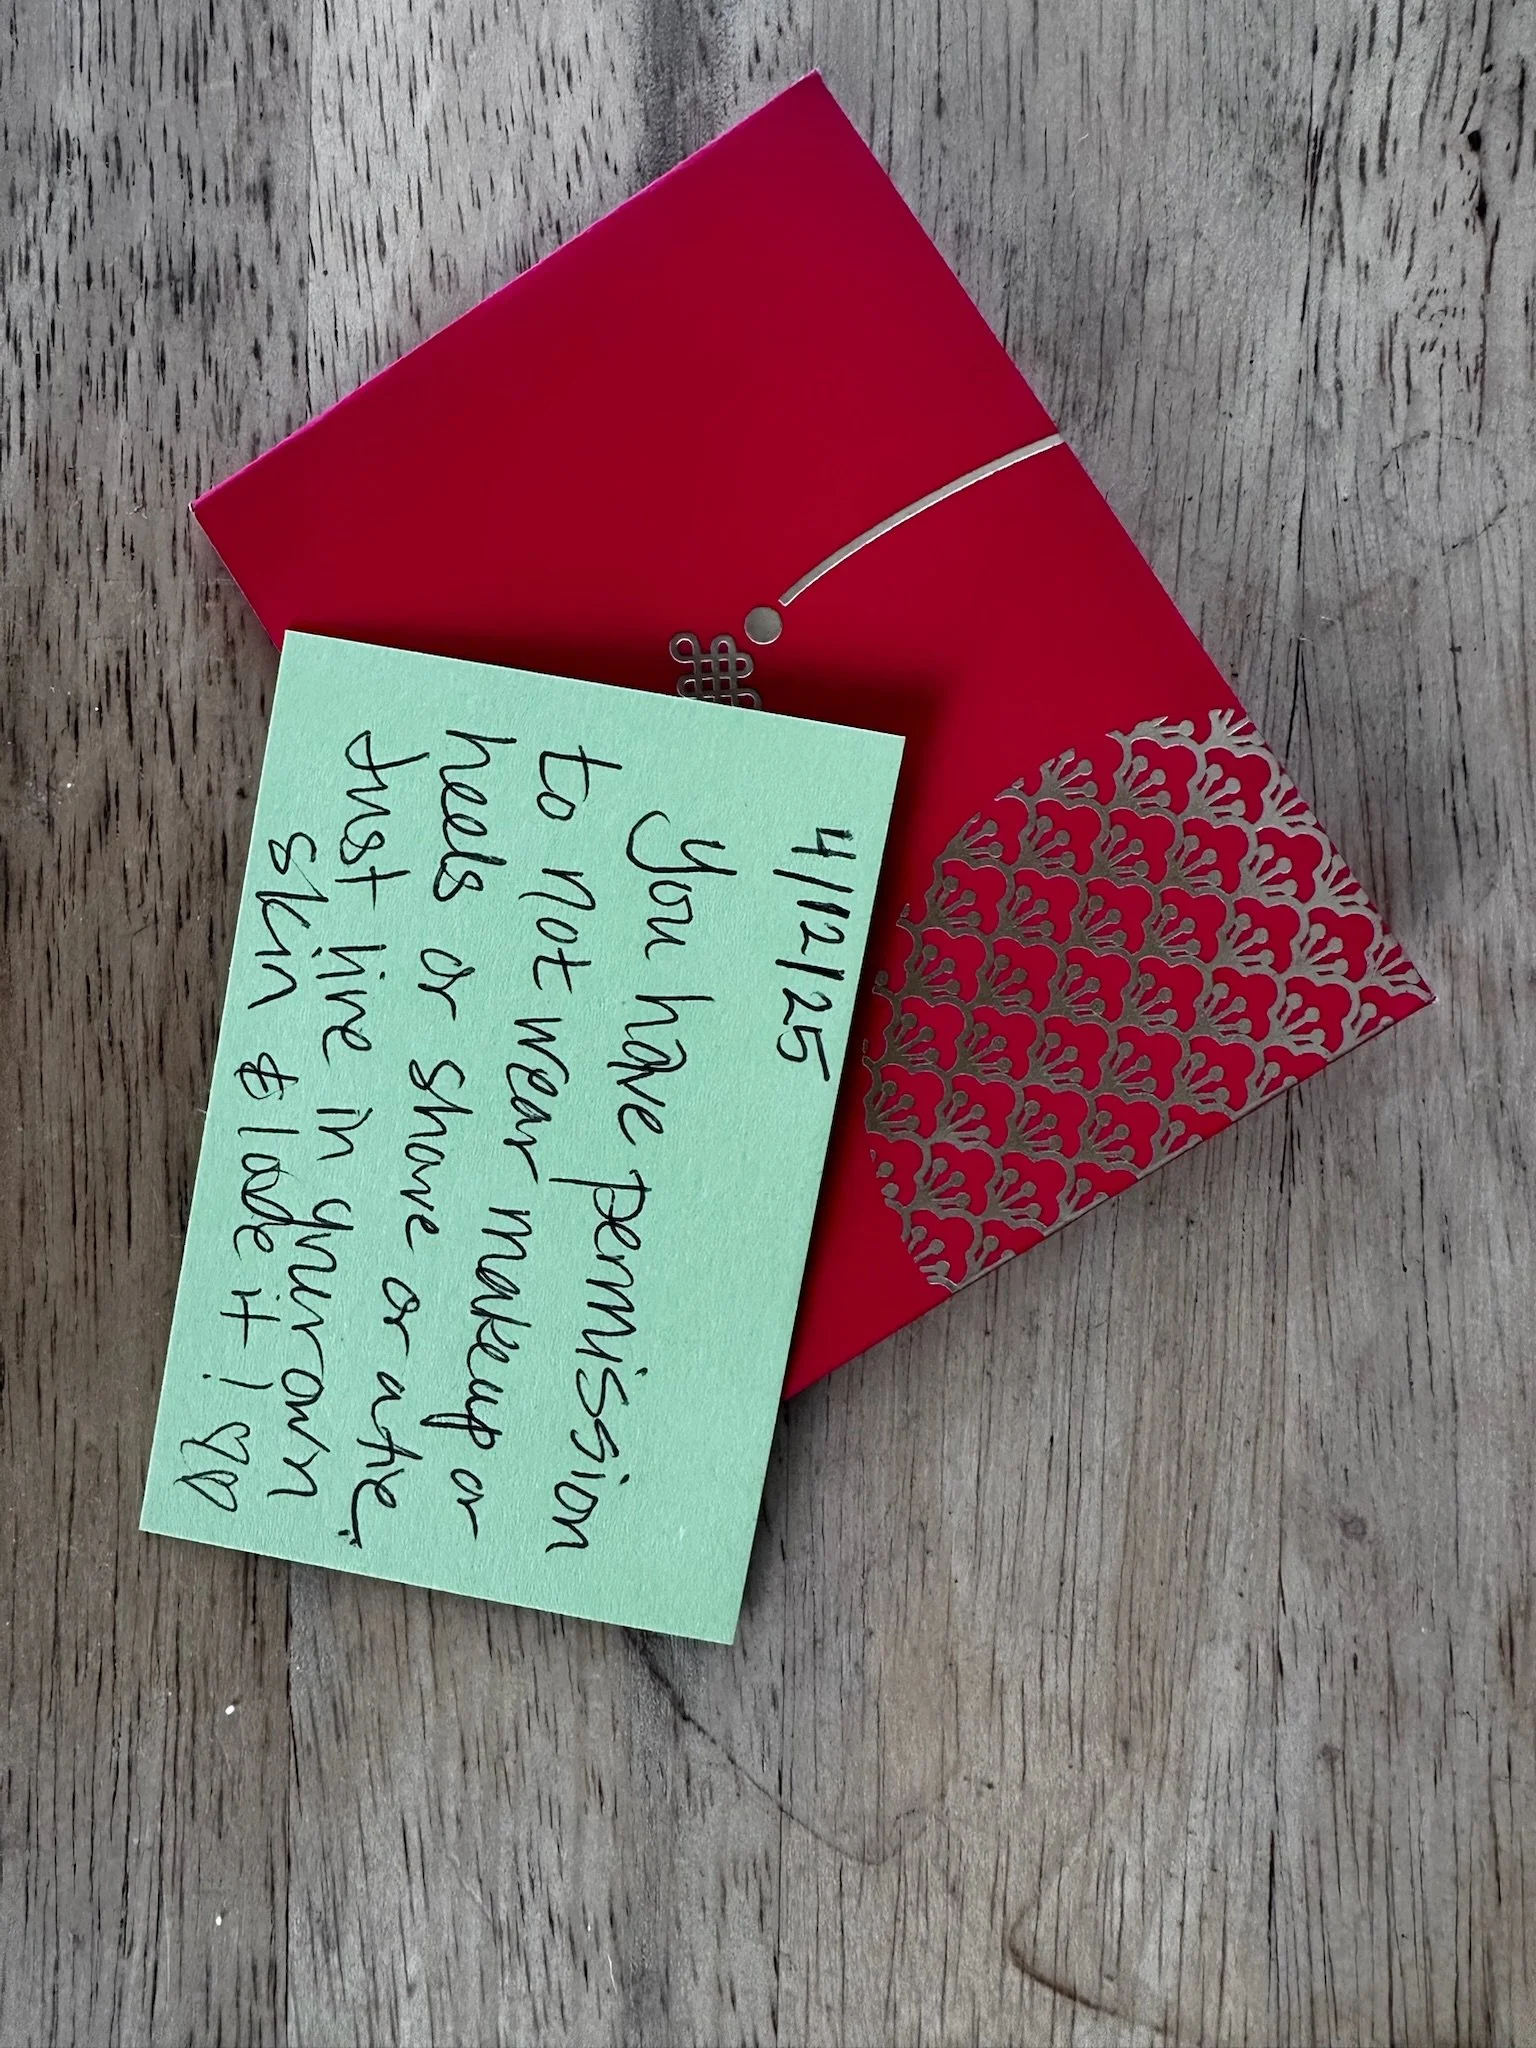 4/12/25
You have permission
to not wear makeup or
heels or shave or a tie.
Just live in your own
skin & love it!